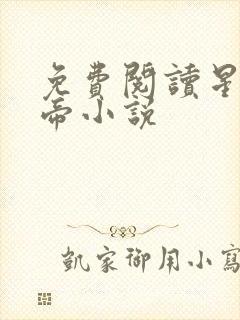 免費閱讀星
帝小說
凱家御用小寫